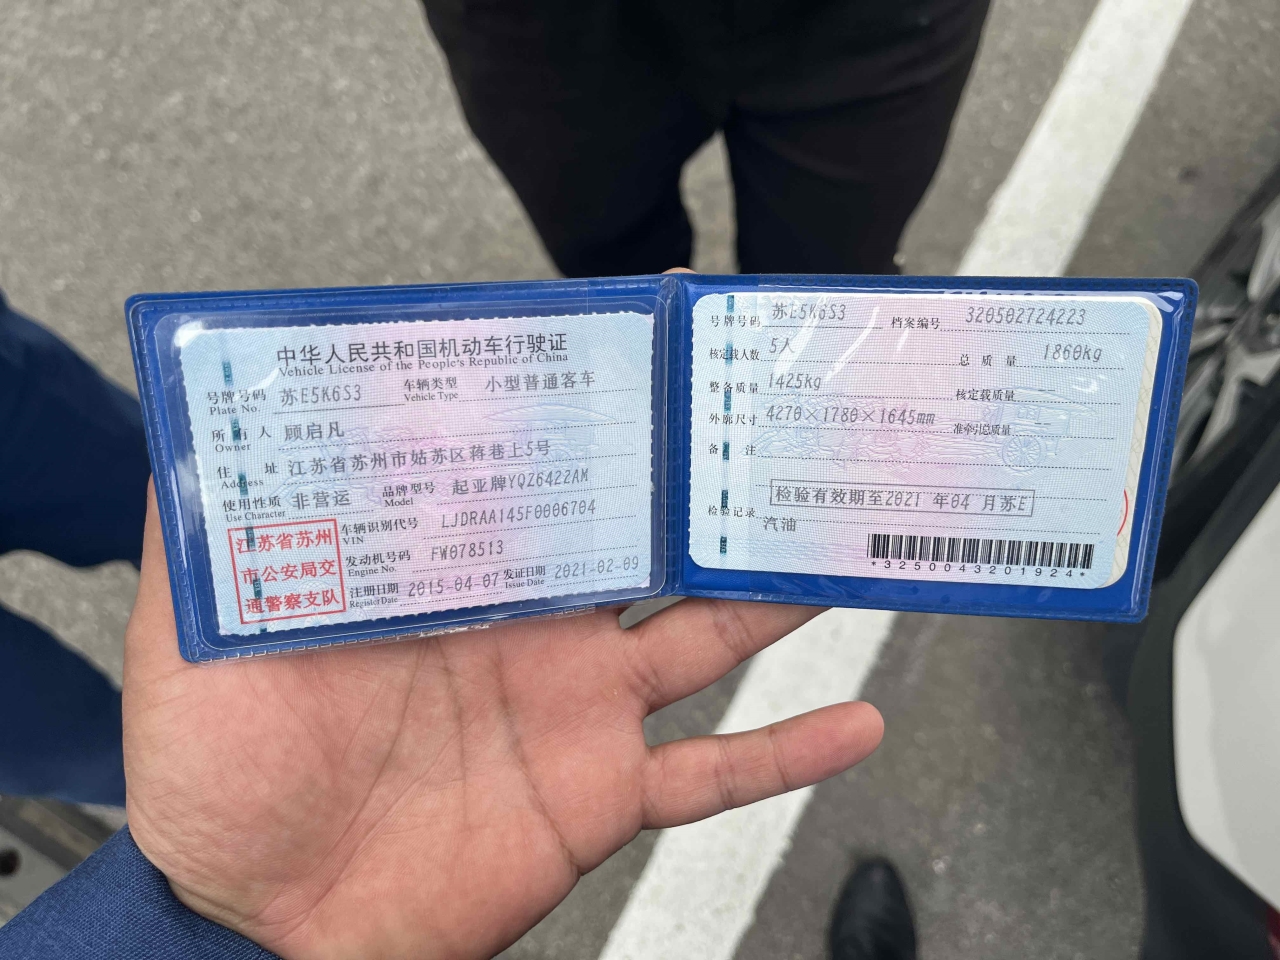 中华人民共和国机动车行驶证
Vehicle License of the People's Republic of China
号牌号码 苏E5K6S3 车辆类型 小型普通客车
Plate No. Vehicle Type
所有人 顾启凡
Owner
住址 江苏省苏州市姑苏区蒋巷上5号
Address
使用性质 非营运 品牌型号 起亚牌YQZ6422AM
Use Character Model
江苏省苏州
市公安局交
通警察支队
车辆识别代号 LJDRAA145F0006704
VIN
发动机号码 FW078513
Engine No.
注册日期 2015-04-07 发证日期 2021-02-09
Register Date Issue Date
号牌号码 苏E5K6S3 档案编号 320502724223
核定载人数 5人 总质量 1860kg
整备质量 1425kg 核定载质量 --
外廓尺寸 4270×1780×1645mm 准牵引总质量 --
备注
检验有效期至2021 年04 月苏E
检验记录
汽油
*3250043201924*